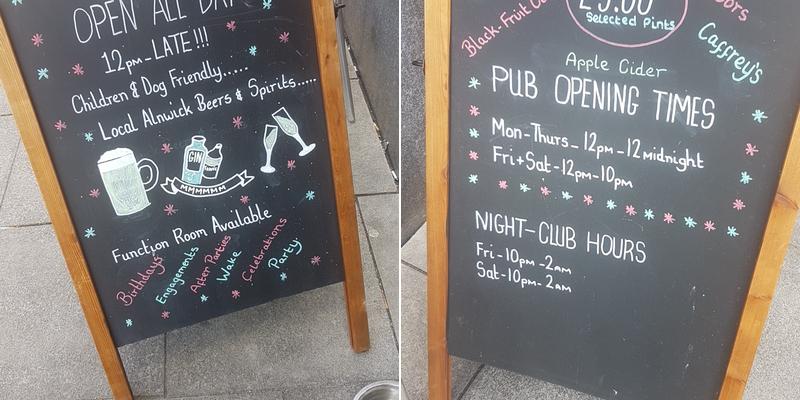 OPEN ALL DAY
12pm-LATE!!!
Children & Dog Friendly.....
Local Alnwick Beers & Spirits.....
GIN
MMMMMM
Function Room Available
Birthdays
Engagements
After Parties
Wake
Celebrations
Party
£3.00
Selected Pints
Black-Fruit
Caffrey's
Apple Cider
PUB OPENING TIMES
Mon-Thurs-12pm-12midnight
Fri+Sat-12pm-10pm
NIGHT-CLUB HOURS
Fri-10pm-2am
Sat-10pm-2am